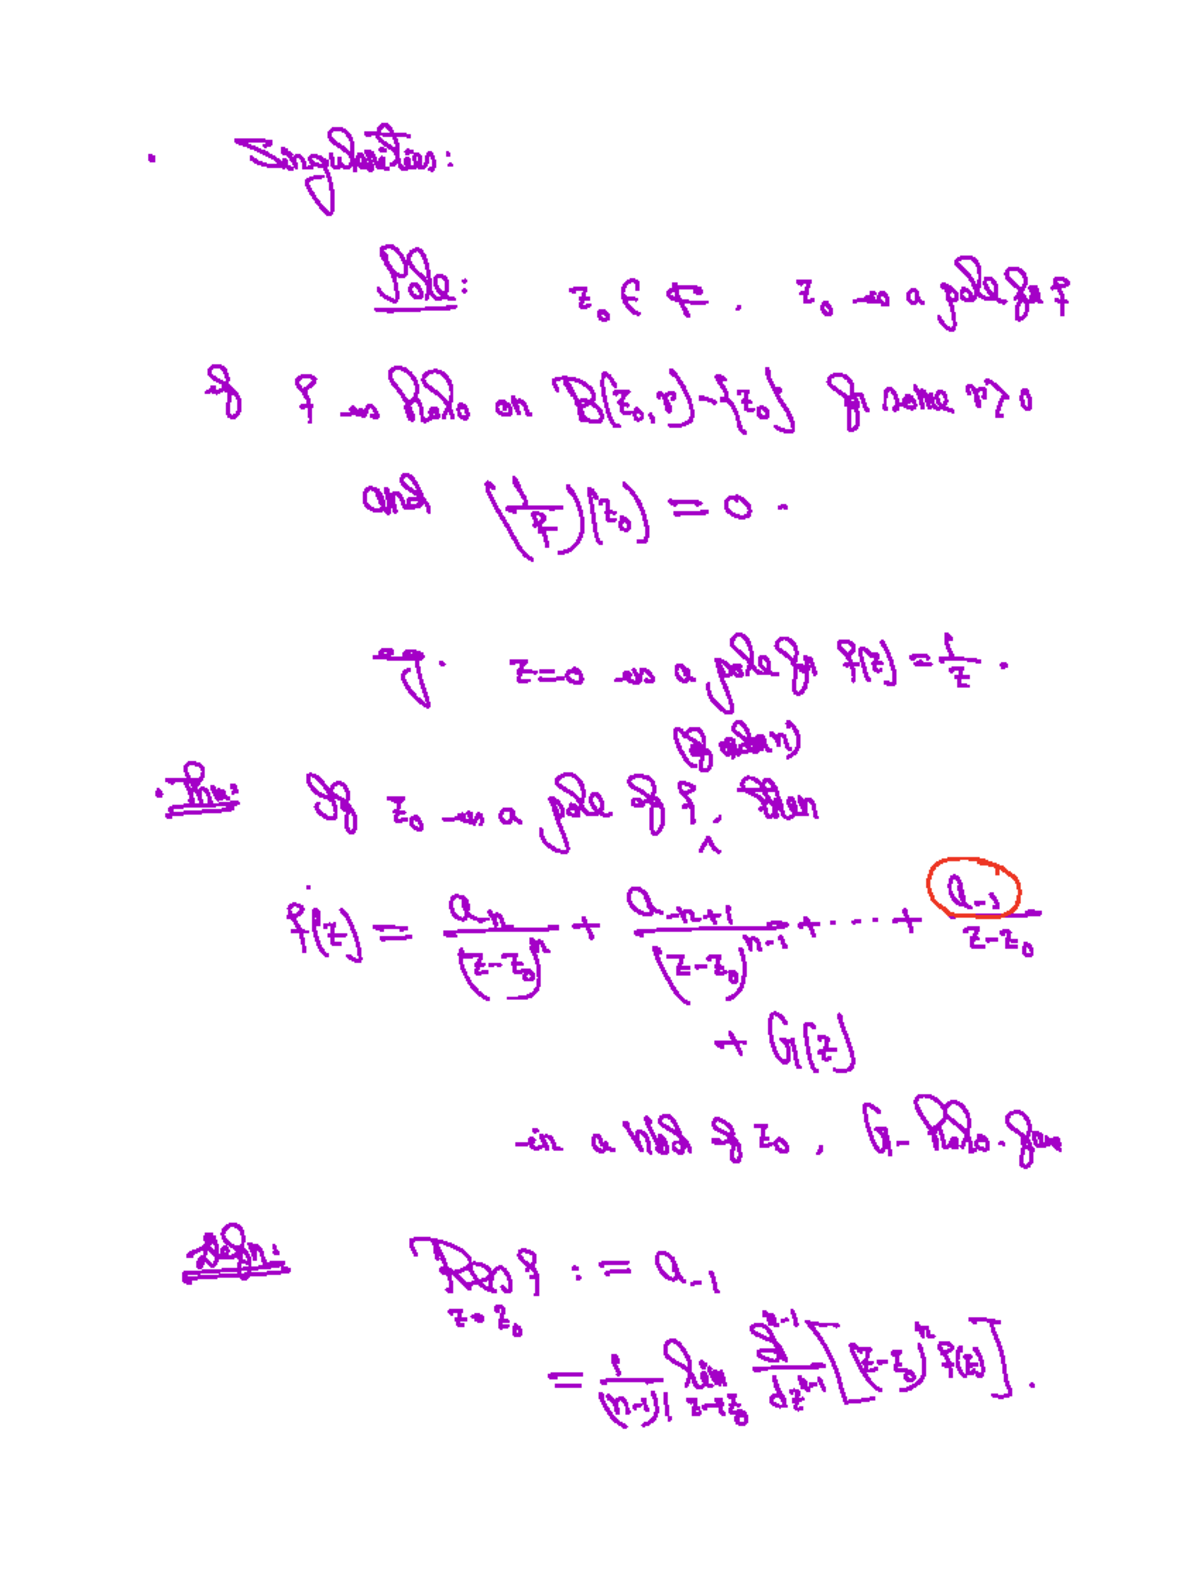 · Singularities:
Pole: z₀ ∈ ℂ. z₀ is a pole for f
if f is holo on B(z₀, r) - {z₀} for some r > 0
and (1/f)(z₀) = 0.
eg. z=0 is a pole for f(z) = 1/z.
(of order n)
· Thm: If z₀ is a pole of f ^, then
f(z) = a₋ₙ/(z-z₀)ⁿ + a₋ₙ₊₁/(z-z₀)ⁿ⁻¹ + ··· + a₋₁/(z-z₀)
+ G(z)
in a nbd of z₀, G- holo. func
Defn: Res_{z=z₀} f := a₋₁
= 1/(n-1)! lim_{z→z₀} dⁿ⁻¹/dzⁿ⁻¹ [(z-z₀)ⁿ f(z)].